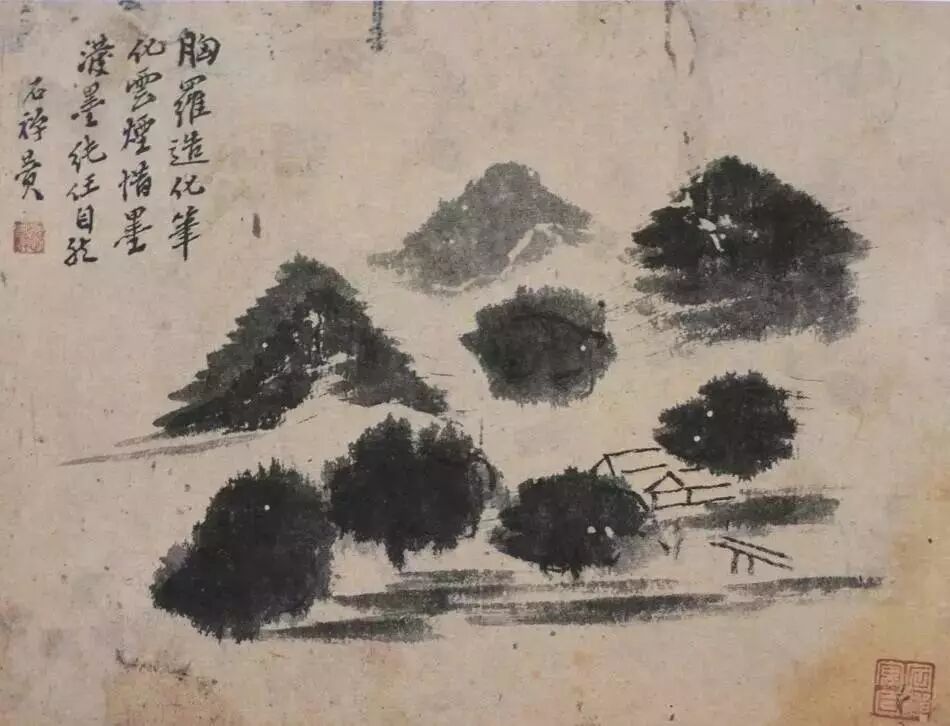 胸羅造化筆
化雲煙惜墨
潑墨純任自然
石禪